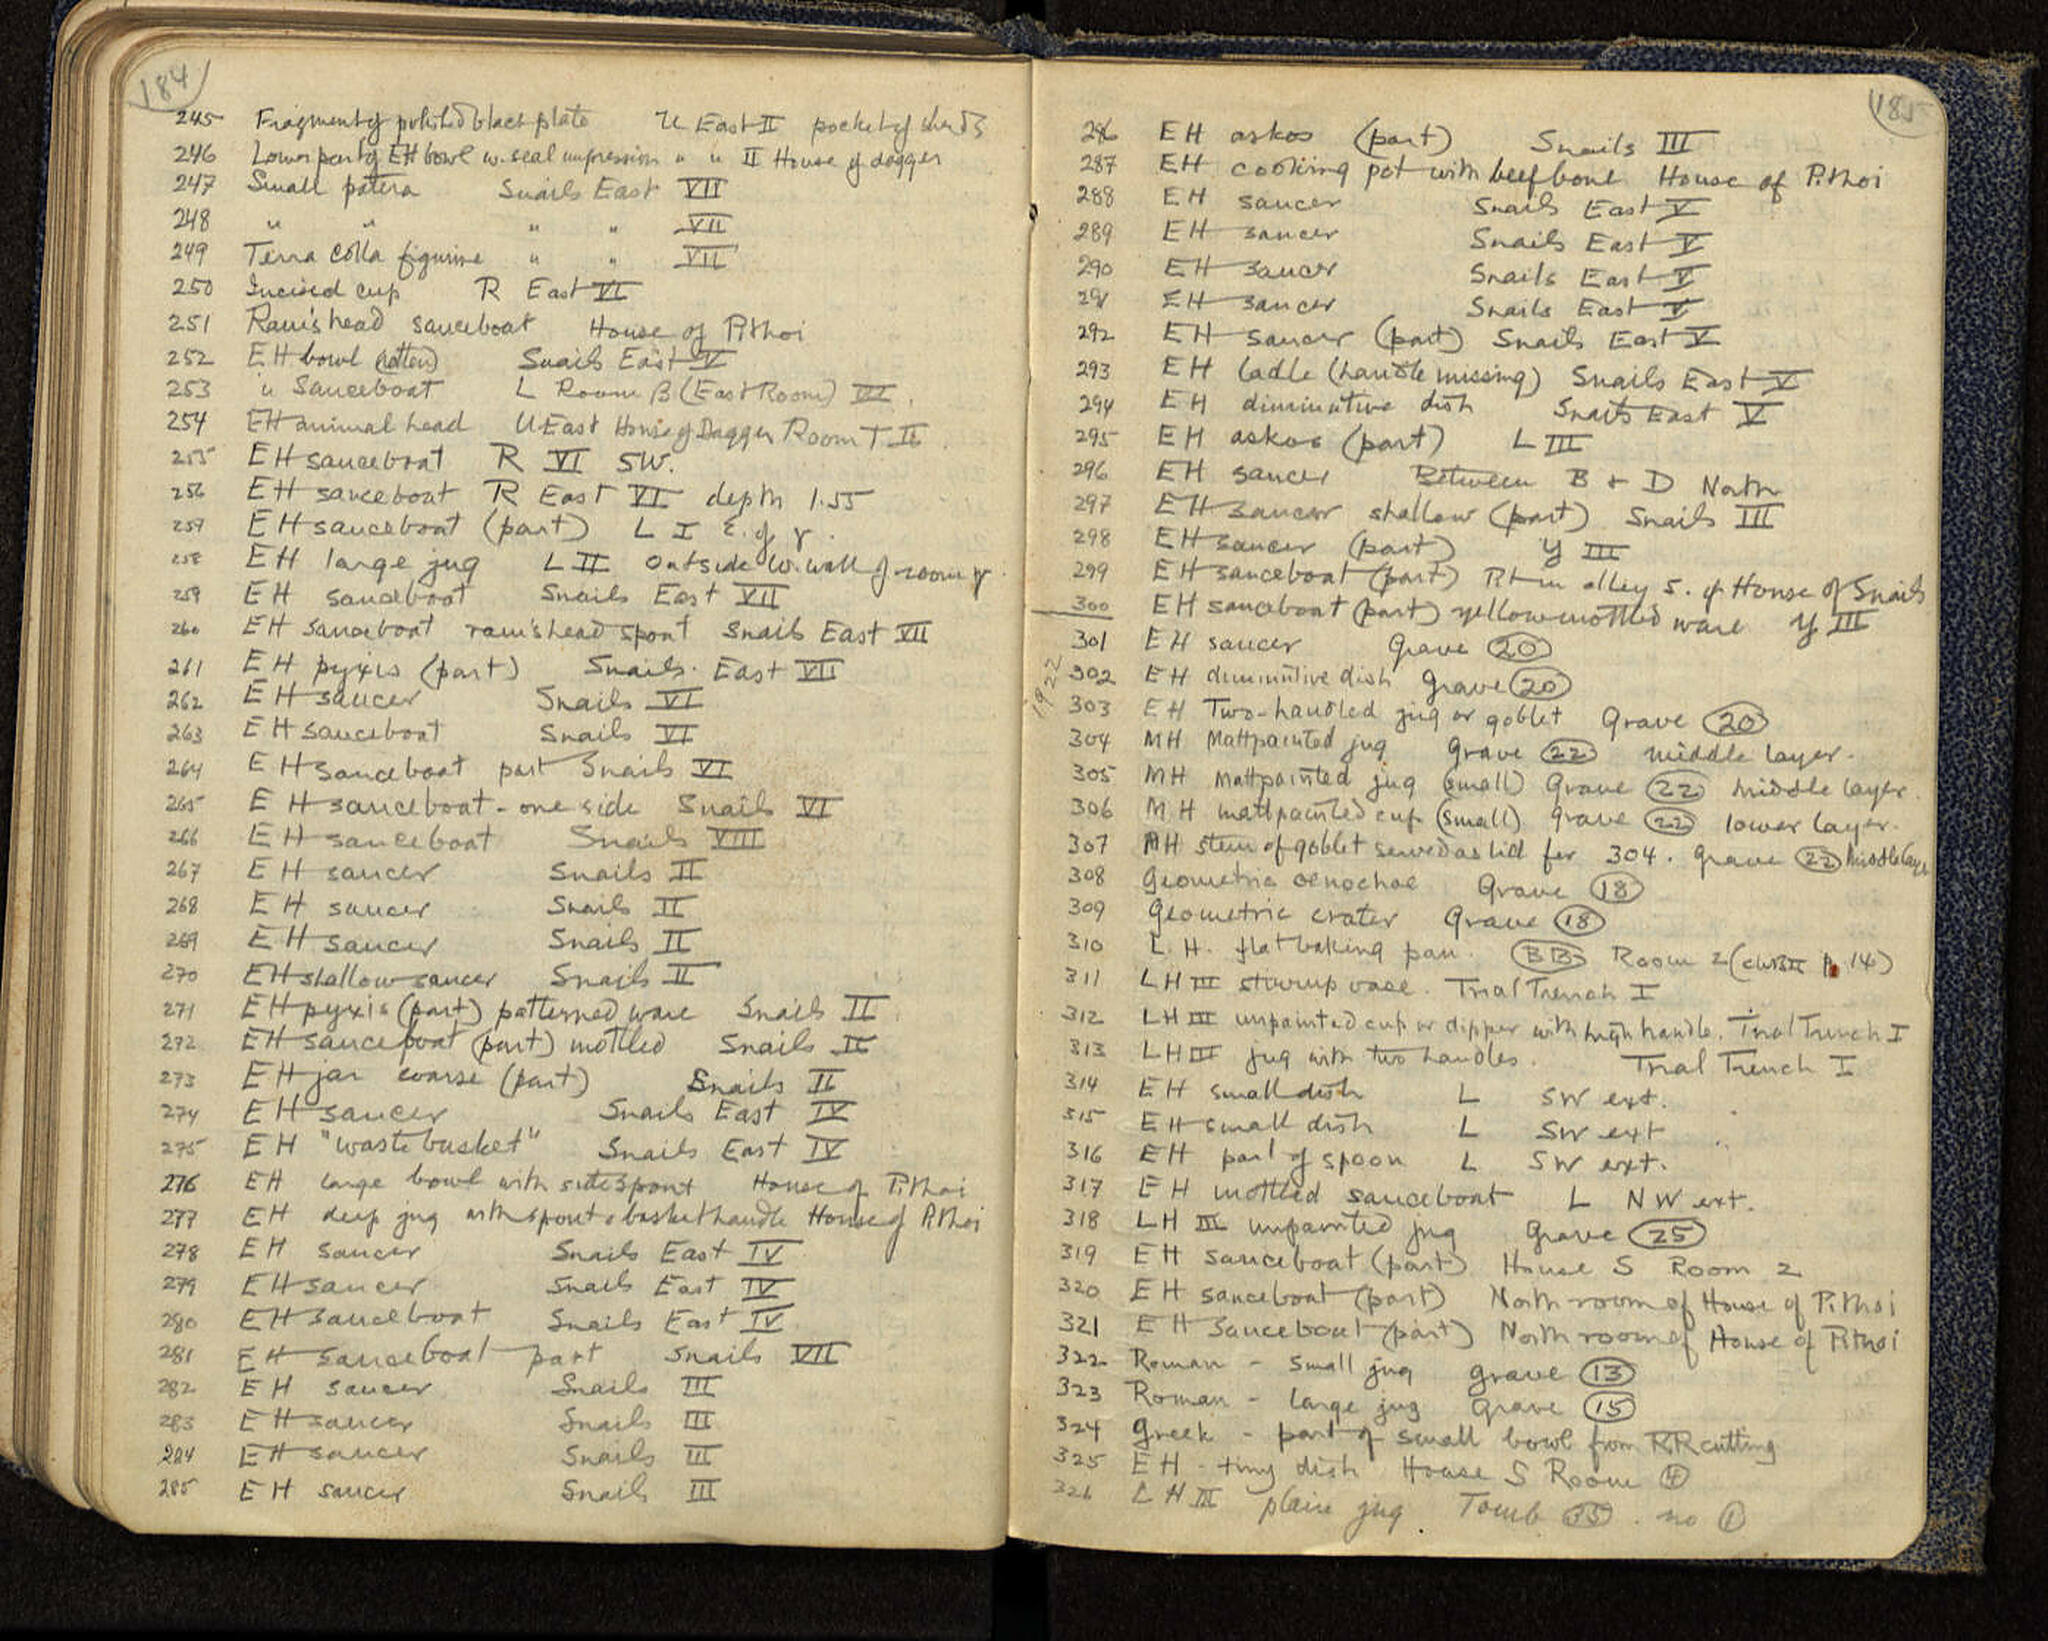 184
245 Fragment of polished black plate U East II pocket of sherds
246 Lower part of EH bowl w. seal impression " " II House of dagger
247 Small patera Snails East VII
248 " " " " VII
249 Terra Cotta figurine " " VII
250 Incised cup R East VI
251 Ram's head sauceboat House of Pithoi
252 EH bowl Snails East V
253 " Sauceboat L Room β (East Room) III.
254 EH animal head U East House of Dagger Room T II.
255 EH sauceboat R VI SW.
256 EH sauceboat R East VI depth 1.55
257 EH sauceboat (part) L I E. of γ.
258 EH large jug L II outside W. wall of room γ.
259 EH sauceboat Snails East VII
260 EH sauceboat ram's head spout Snails East VII
261 EH pyxis (part) Snails. East VII
262 EH saucer Snails VI
263 EH sauceboat Snails VI
264 EH sauceboat part Snails VI
265 EH sauceboat - one side Snails VI
266 EH sauceboat Snails VIII
267 EH saucer Snails II
268 EH saucer Snails II
269 EH saucer Snails II
270 EH shallow saucer Snails II
271 EH pyxis (part) patterned ware Snails II
272 EH sauceboat (part) mottled Snails II
273 EH jar coarse (part) Snails II
274 EH saucer Snails East IV
275 EH "waste basket" Snails East IV
276 EH large bowl with side spout House of Pithoi
277 EH deep jug with spout & basket handle House of Pithoi
278 EH saucer Snails East IV
279 EH saucer Snails East IV
280 EH sauceboat Snails East IV
281 EH sauceboat part Snails VII
282 EH saucer Snails III
283 EH saucer Snails III
284 EH saucer Snails III
285 EH saucer Snails III
185
286 EH askos (part) Snails III
287 EH cooking pot with beef bone House of Pithoi
288 EH saucer Snails East V
289 EH saucer Snails East V
290 EH saucer Snails East V
291 EH saucer Snails East V
292 EH saucer (part) Snails East V
293 EH ladle (handle missing) Snails East V
294 EH diminutive dish Snails East V
295 EH askos (part) L III
296 EH saucer Between B & D North
297 EH saucer shallow (part) Snails III
298 EH saucer (part) Y III
299 EH sauceboat (part) Pit in alley S. of House of Snails
300 EH sauceboat (part) yellow mottled ware Y III
1922
301 EH saucer Grave 20
302 EH diminutive dish Grave 20
303 EH Two-handled jug or goblet Grave 20
304 MH Mattpainted jug Grave 22 middle layer.
305 MH Mattpainted jug (small) Grave 22 middle layer.
306 MH mattpainted cup (small) Grave 22 lower layer.
307 MH stem of goblet served as lid for 304. Grave 22 middle layer
308 Geometric oenochoe Grave 18
309 Geometric crater Grave 18
310 L.H. flat baking pan. BB Room 2 p. 14)
311 LH III stirrup vase. Trial Trench I
312 LH III unpainted cup or dipper with high handle. Trial Trench I
313 LH III jug with two handles. Trial Trench I
314 EH small dish L SW ext.
315 EH small dish L SW ext
316 EH part of spoon L SW ext.
317 EH mottled sauceboat L NW ext.
318 LH III unpainted jug Grave 25
319 EH sauceboat (part) House S Room 2
320 EH sauceboat (part) North room of House of Pithoi
321 EH sauceboat (part) North room of House of Pithoi
322 Roman - small jug Grave 13
323 Roman - large jug Grave 15
324 Greek - part of small bowl from RR cutting
325 EH - tiny dish House S Room 4
326 LH III plain jug. Tomb 35. no 1